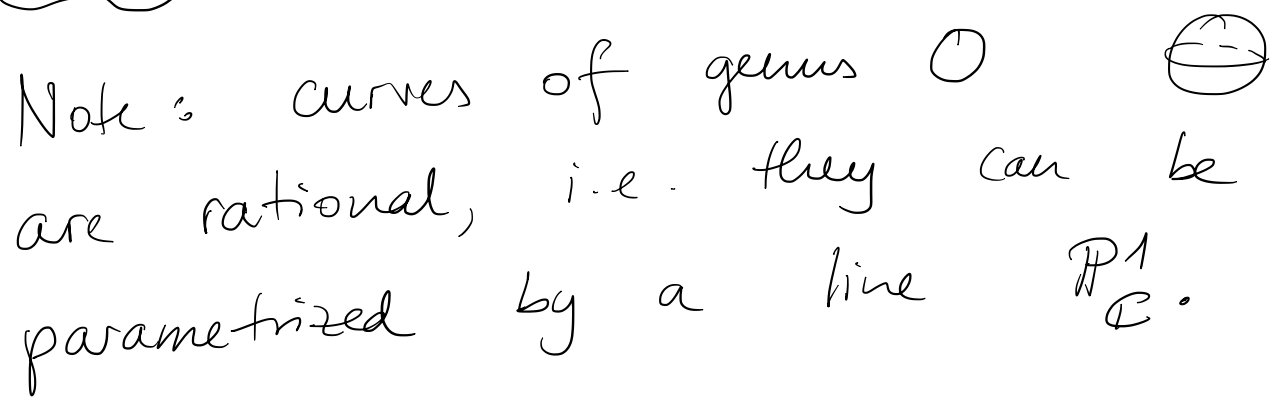 Note: curves of genus 0
are rational, i.e. they can be
parametrized by a line ℙ¹_ℂ.